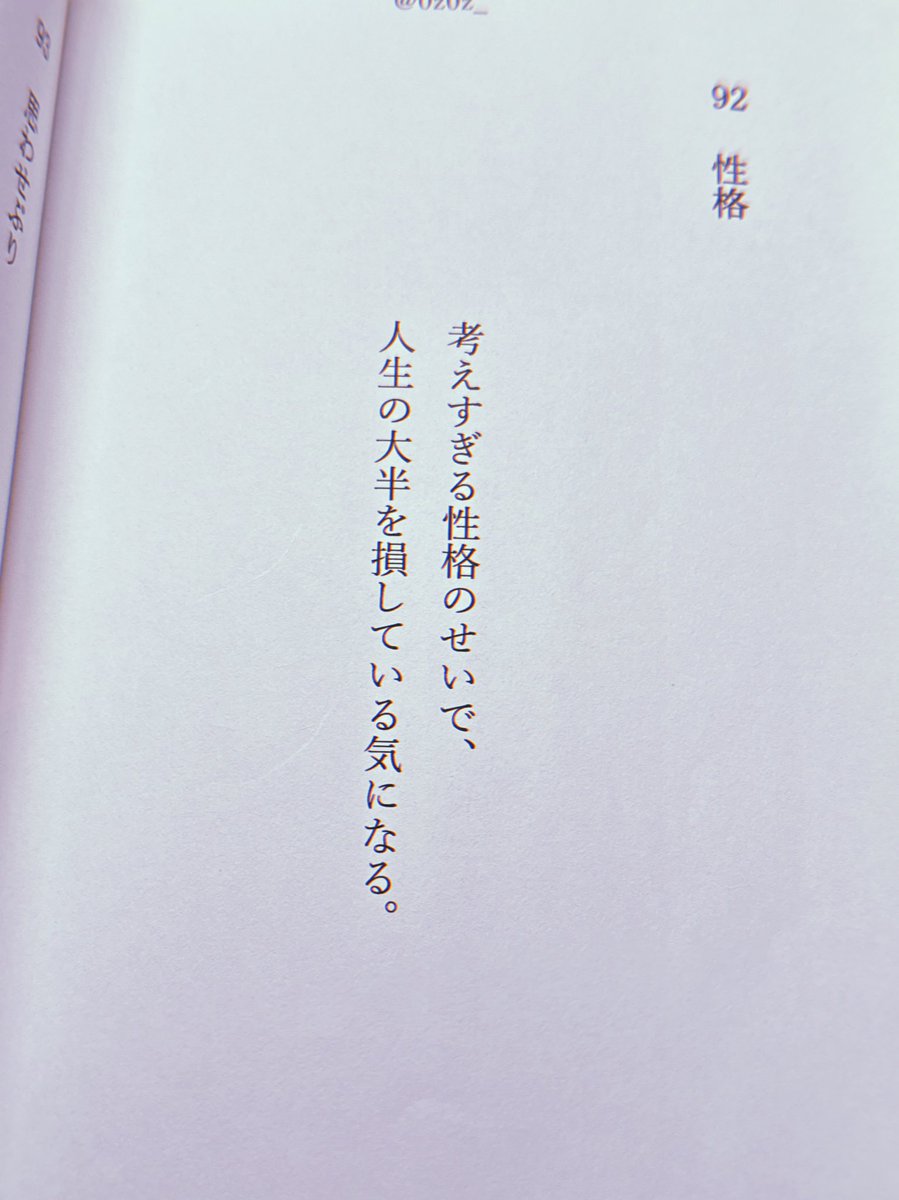 92 性格
考えすぎる性格のせいで、
人生の大半を損している気になる。